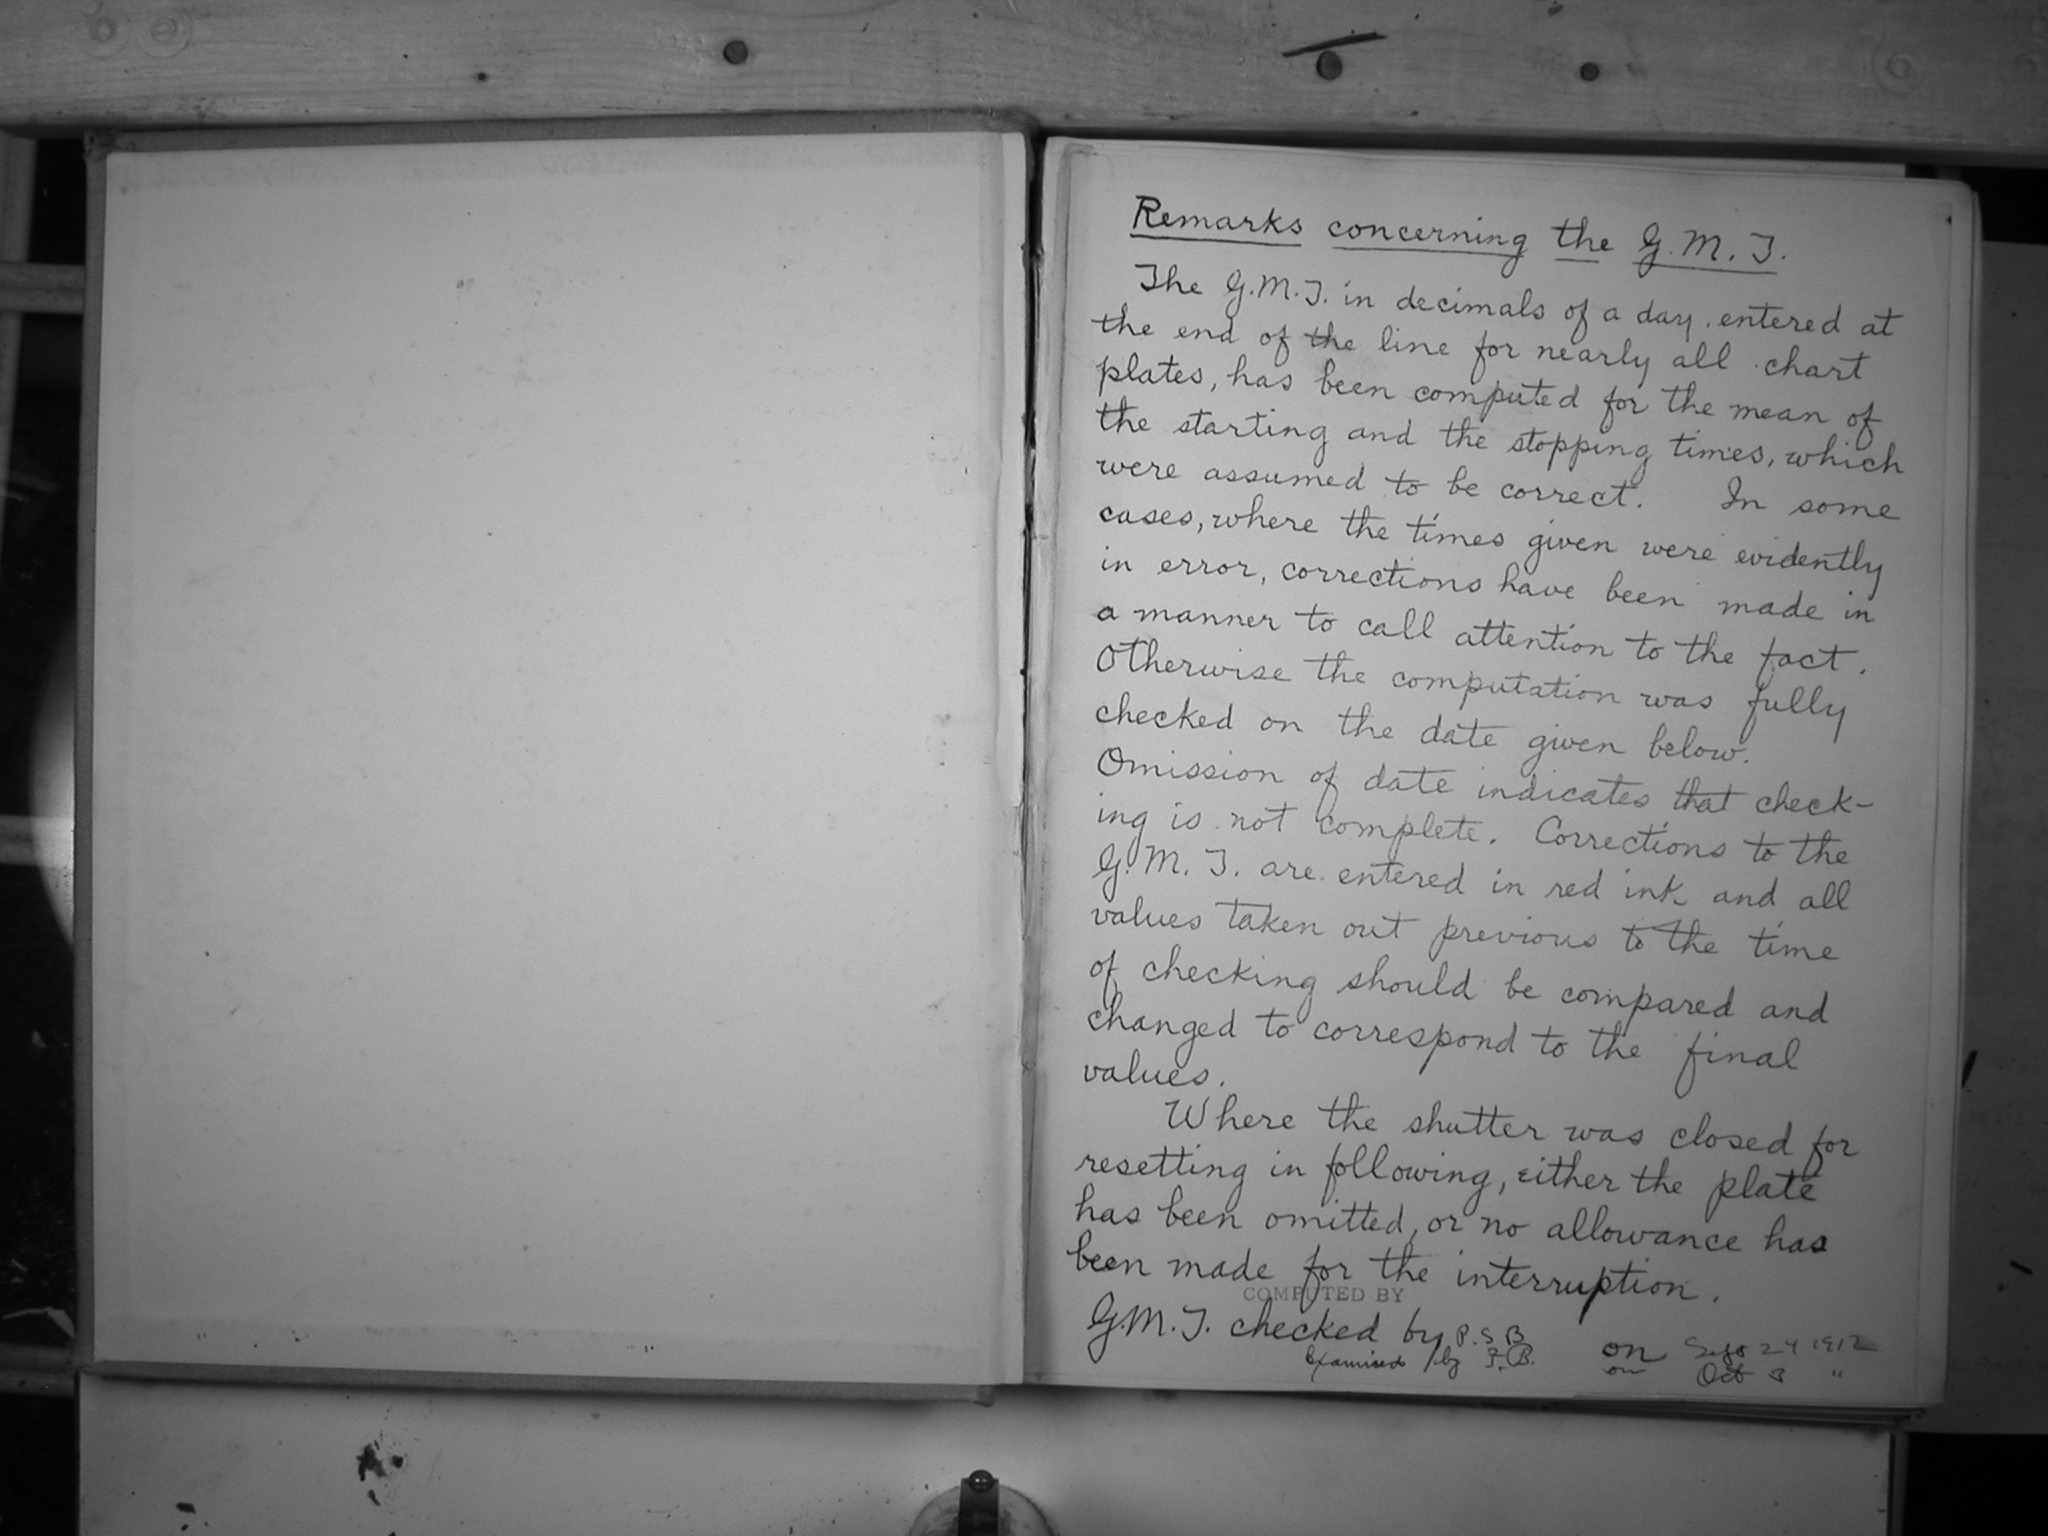 Remarks concerning the G.M.T.
The G.M.T. in decimals of a day entered at
the end of the line for nearly all chart
plates, has been computed for the mean of
the starting and the stopping times, which
were assumed to be correct. In some
cases, where the times given were evidently
in error, corrections have been made in
a manner to call attention to the fact.
Otherwise the computation was fully
checked on the date given below.
Omission of date indicates that check-
ing is not complete. Corrections to the
G.M.T. are entered in red ink and all
values taken out previous to the time
of checking should be compared and
changed to correspond to the final
values.
Where the shutter was closed for
resetting in following, either the plate
has been omitted, or no allowance has
been made for the interruption.
COMPUTED BY
G.M.T. checked by P.S.B. on Sept 24 1912
Examined by F.B. on Oct 3 "